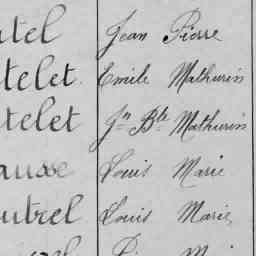 tel Jean Pierre
telet Emile Mathurin
telet Jn Bte Mathurin
ausse Louis Marie
utrel Louis Marie